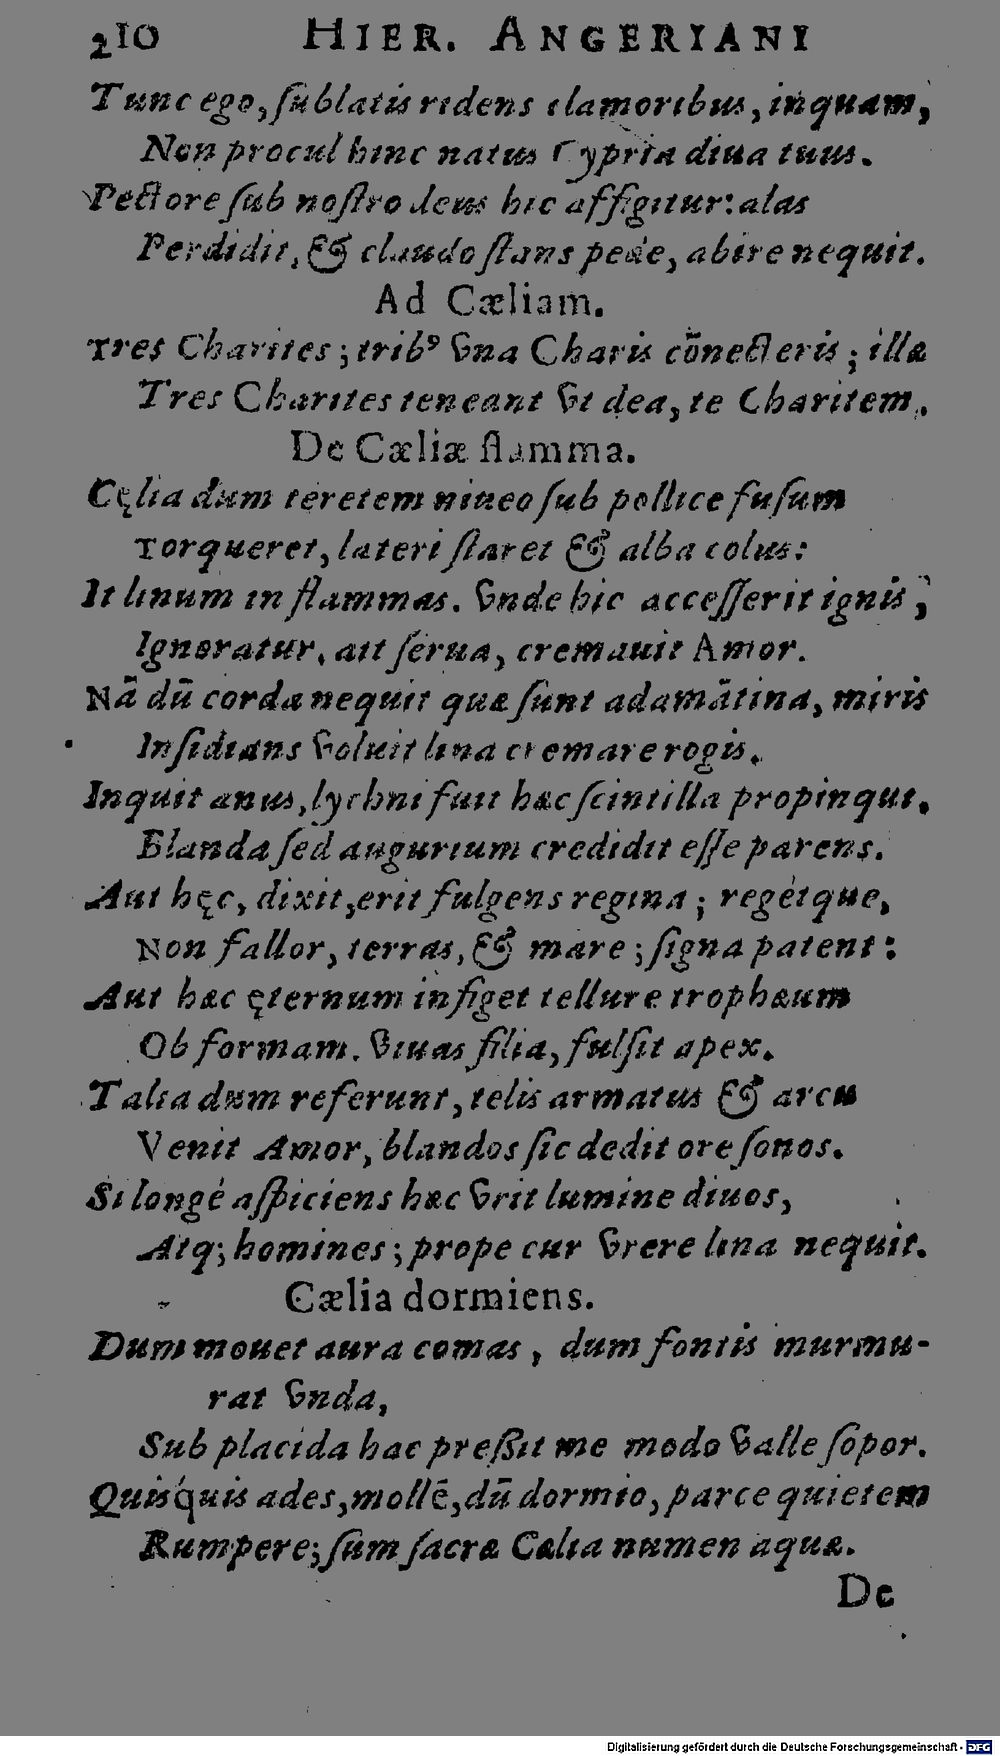 210 HIER. ANGERIANI
Tunc ego, ſublatis ridens clamoribus, inquam,
Non procul hinc natus Cypria diua tuus.
Pectore ſub noſtro deus hic affigitur: alas
Perdidit, & claudo ſtans pede, abire nequit.
Ad Cæliam.
Tres Charites; tribꝰ vna Charis cõnecteris; illæ
Tres Charites teneant vt dea, te Charitem.
De Cæliæ flamma.
Cęlia dum teretem niueo ſub pollice fuſum
Torqueret, lateri ſtaret & alba colus:
It linum in flammas. vnde hic acceſſerit ignis,
Ignoratur, ait ſerua, cremauit Amor.
Nã dũ corda nequit quæ ſunt adamãtina, miris
Inſidians voluit lina cremare rogis.
Inquit anus, lychni fuit hæc ſcintilla propinqui.
Blanda ſed augurium credidit eſſe parens.
Aut hęc, dixit, erit fulgens regina; regétque,
Non fallor, terras, & mare; ſigna patent:
Aut hæc ęternum infiget tellure trophæum
Ob formam. viuas filia, fulſit apex.
Talia dum referunt, telis armatus & arcu
Venit Amor, blandos ſic dedit ore ſonos.
Si longé aſpiciens hæc vrit lumine diuos,
Atq; homines; prope cur vrere lina nequit.
Cælia dormiens.
Dum mouet aura comas, dum fontis murmu-
rat vnda,
Sub placida hac preßit me modo valle ſopor.
Quisquis ades, mollẽ, dũ dormio, parce quietem
Rumpere; ſum ſacræ Cælia numen aquæ.
De
Digitalisierung gefördert durch die Deutsche Forschungsgemeinschaft - DFG